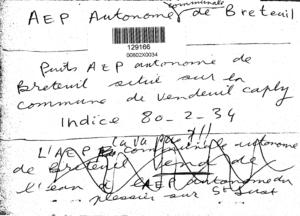 AEP Autonome communale de Breteuil
129166
00802X0034
Puits AEP autonome de
Breteuil situé sur la
commune de Vendeuil caply
Indice 80-2-34
ça va pas !!!
L'AEP communale autonome
de Breteuil vend de
l'eau à l'AEP autonome du
plessier sur St Just